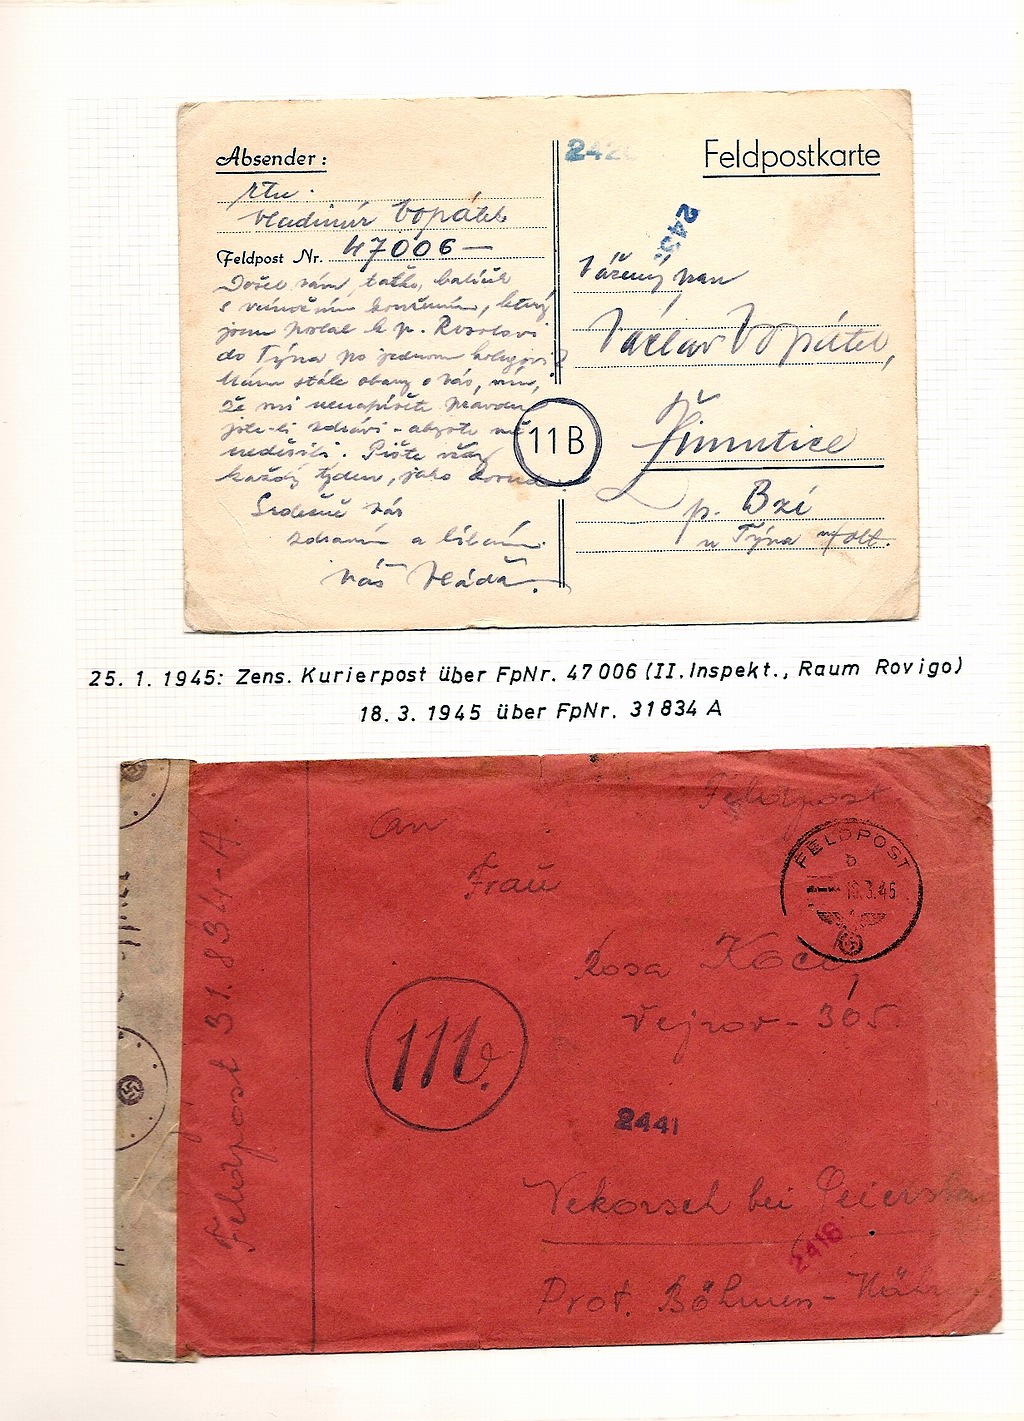 Absender:
rtn.
Vladimír Vopátek
Feldpost Nr. 47006 —
Došel vám, taťko, balíček
s vánočním kouřením, který
jsem poslal k p.
do Týna po jednom kolegovi?
Mám stále obavy o vás, vím,
že mi nenapíšete pravdu
jste-li zdrávi - abyste mě
neděsili. Pište vždy
každý týden, jako dosud.
Srdečně vás
zdravím a líbám.
Váš Vláďa.
242
Feldpostkarte
245
Vážený pan
Václav Vopátek,
11B
Žimutice
p. Bzí
u Týna n/Vlt.
25. 1. 1945: Zens. Kurierpost über FpNr. 47006 (II. Inspekt., Raum Rovigo)
18. 3. 1945 über FpNr. 31834 A
Feldpost
An
FELDPOST
b
18.3.45
Frau
Rosa Kočí,
Vejrov - 305
111b.
2441
Wekorsch bei
2416
Prot. Böhmen - Mähr
Feldpost 31.834-A.